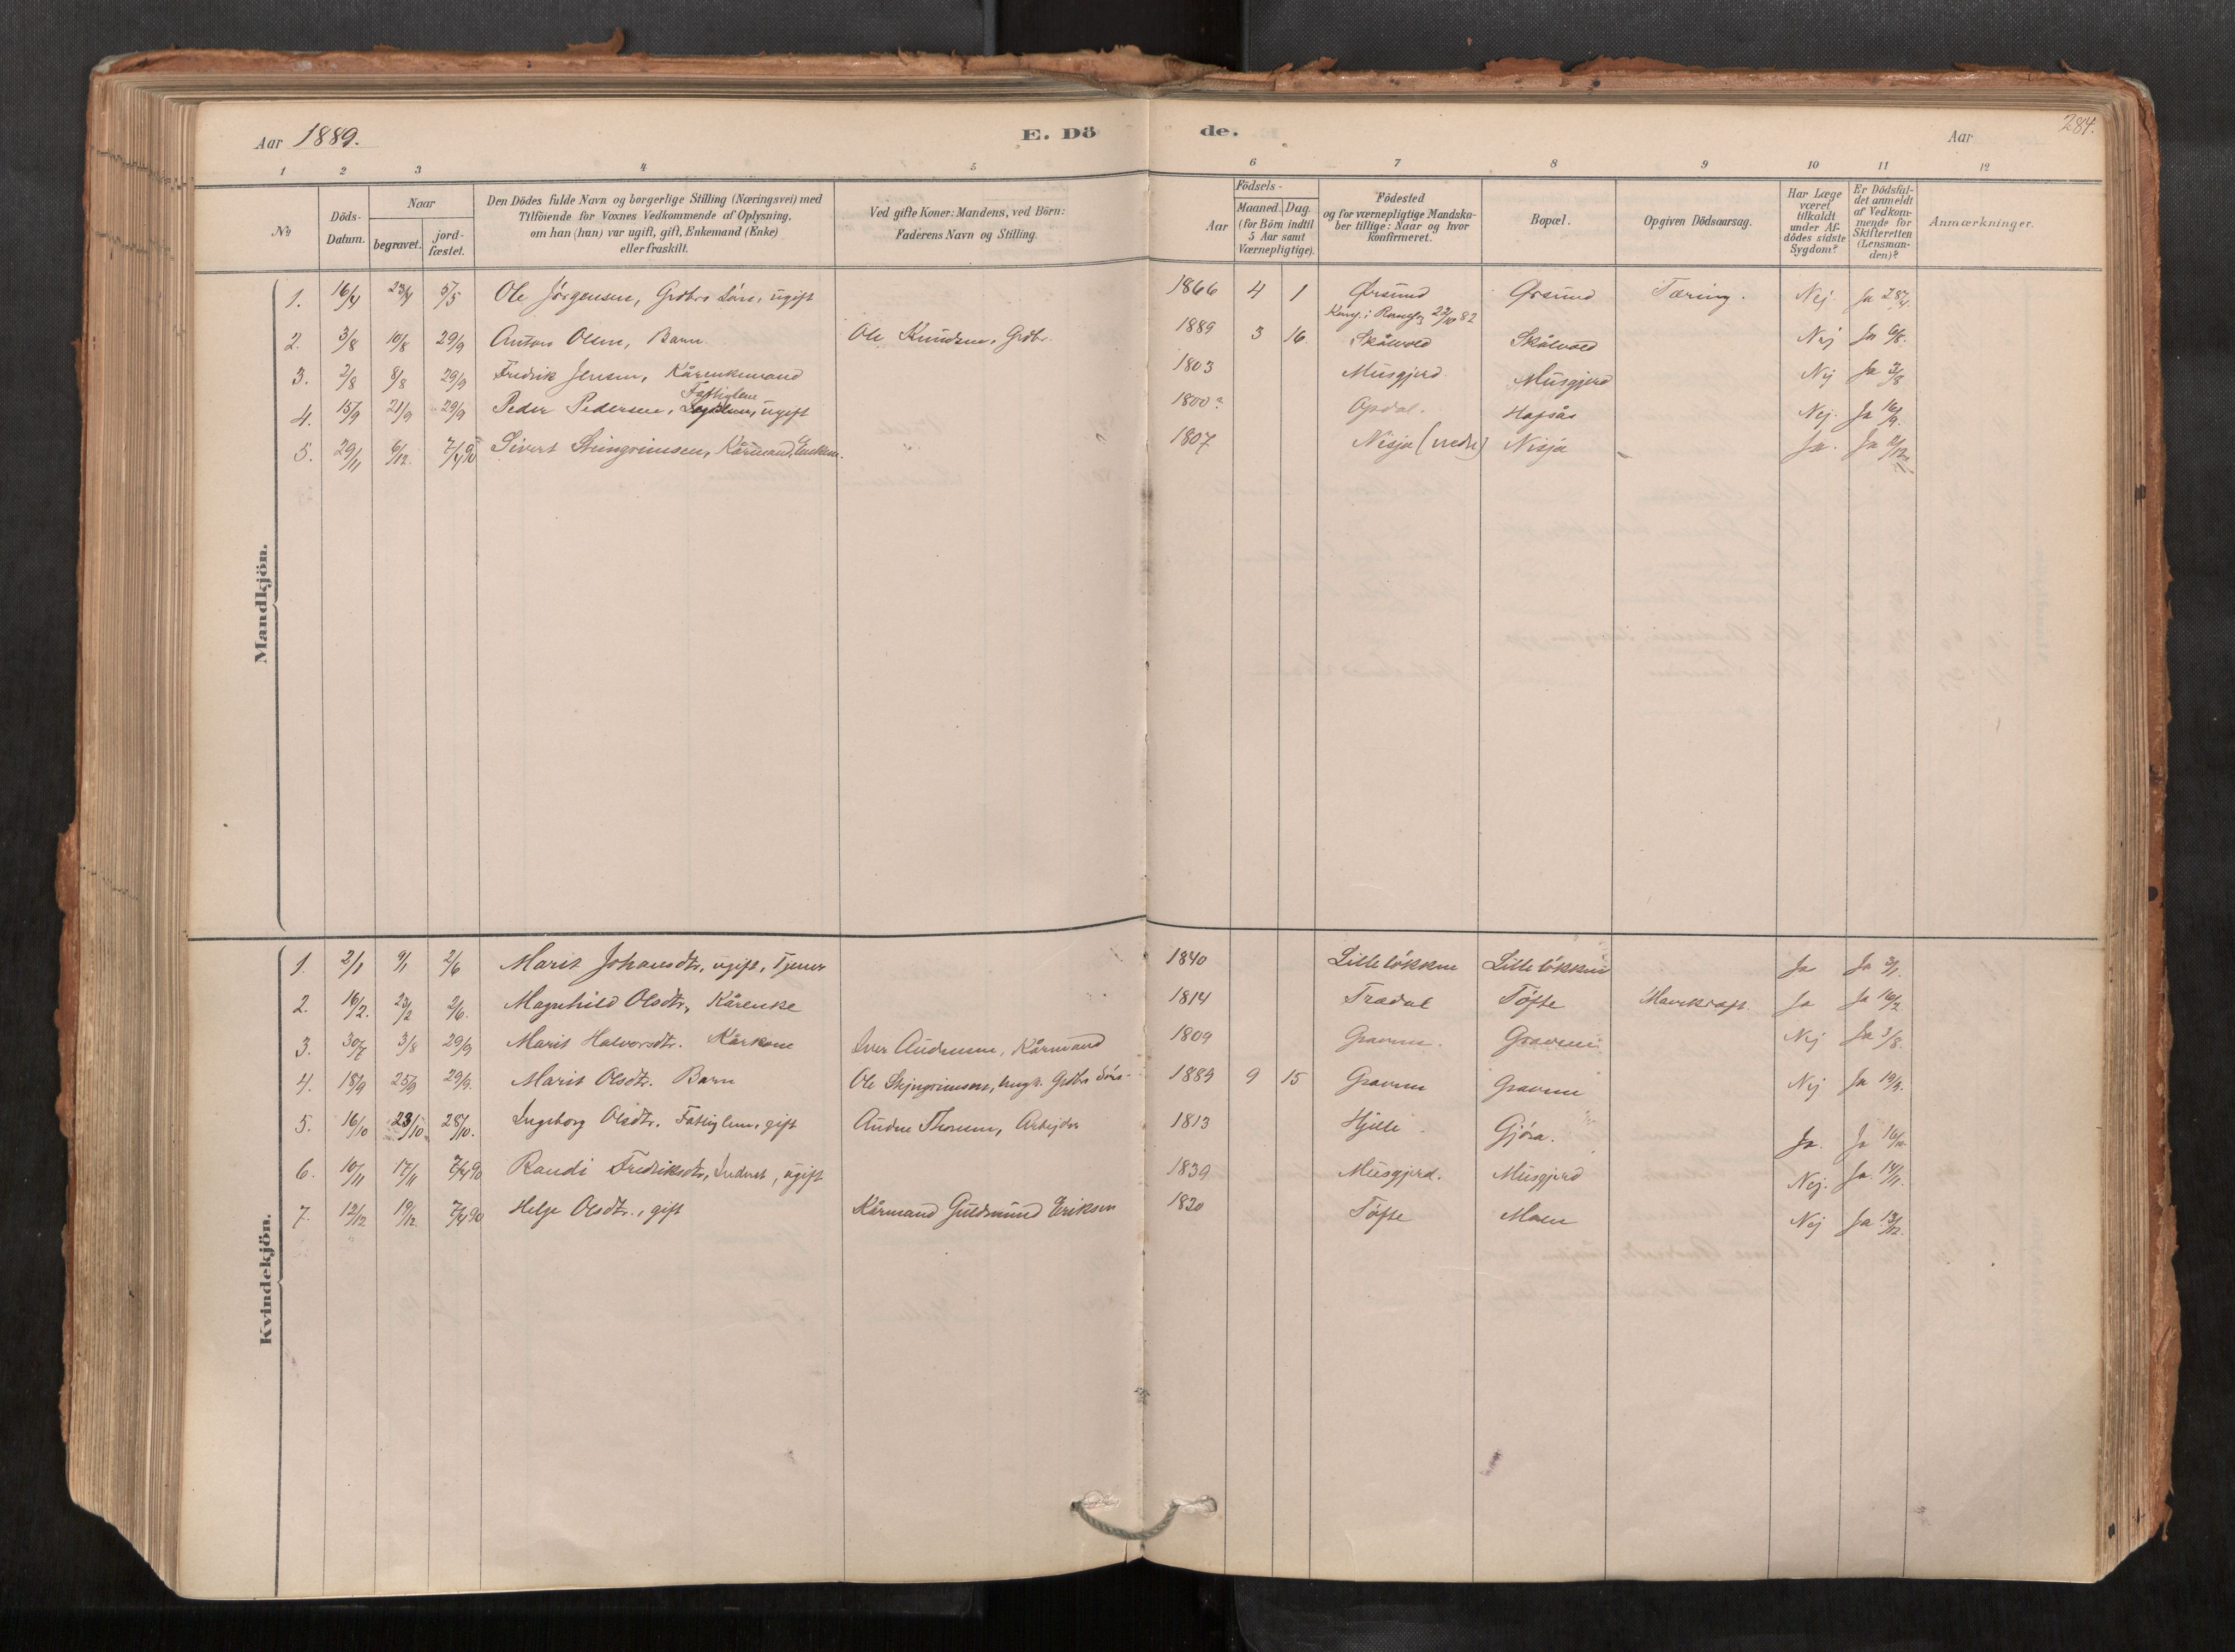 Aar 1889. E. Dö de. Aar 284.
1 2 3 4 5 6 7 8 9 10 11 12
No
Döds-Datum.
Naar
begravet.
jord-fæstet.
Den Dödes fulde Navn og borgerlige Stilling (Næringsvei) med
Tilföiende for Voxnes Vedkommende af Oplysning,
om han (hun) var ugift, gift, Enkemand (Enke)
eller fraskilt.
Ved gifte Koner: Mandens, ved Börn:
Faderens Navn og Stilling.
Födsels-
Aar
Maaned. Dag.
(for Börn indtil
5 Aar samt
Værnepligtige).
Födested
og for værnepligtige Mandska-
ber tillige: Naar og hvor
konfirmeret.
Bopæl.
Opgiven Dödsaarsag.
Har Læge
været
tilkaldt
under Af-
dödes sidste
Sygdom?
Er Dödsfal-
det anmeldt
af Vedkom-
mende for
Skifteretten
(Lensman-
den)?
Anmærkninger.
Mandkjön.
1. 16/4 23/4 5/5 Ole Jörgensen, Grdbrs Sön, ugift 1866 4 1 Ørsund Ørsund Tæring. Nej. Ja 28/4.
Konf. i 23/10 82
2. 3/8 10/8 29/9 Anton Olsen, Barn. Ole Knudsen, Grdbr. 1889 3 16 Skålvold Skålvold Nej Ja 6/8.
3. 2/8 8/8 29/9 Fredrik Jensen, Kårenkemand 1803 Musgjerd Musgjerd Nej Ja 3/8
Fattiglem
4. 15/9 21/9 29/9 Peder Pedersen, ugift 1800? Opdal. Hafsås Nej. Ja 16/9.
5. 29/11 6/12. 7/4 90 Sivert Steingrimsen, Kårmand, Enkem. 1807 Nisja (nedre) Nisja - Ja. Ja 2/12.
Kvindekjön.
1. 2/1 9/1 2/6 Marit Johansdtr, ugift, Tjener 1840 Lillelökken Lillelökken Ja Ja 3/1.
2. 16/2. 23/2 2/6. Magnhild Olsdtr, Kårenke 1814 Trædal Töfte Mavekræft. Ja Ja 16/2
3. 30/7 3/8 29/9 Marit Halvorsdtr. Kårkone Iver Andersen, Kårmand 1809 Gravem. Gravem Nej Ja 3/8.
4. 18/9 25/9 29/9. Marit Olsdtr. Barn Ole Stejngrimsen, Ungk. Grdbr Sön 1889 9 15 Gravem Gravem Nej Ja 19/9.
5. 16/10 23/10 28/10. Ingeborg Olsdtr. Fattiglem, gift Andre Thoresen, Arbejder 1813 Hjelle Gjöra. Ja. Ja 16/10.
6. 10/11 17/11 7/4 90 Randi Fredriksdtr, Inderst, ugift 1839 Musgjerd. Musgjerd Nej. Ja 14/11.
7. 12/12 19/12 7/4 90 Helge Olsdtr., gift Kårmand Guldmund Eriksen 1820 Töfte Moen Nej Ja 13/12.